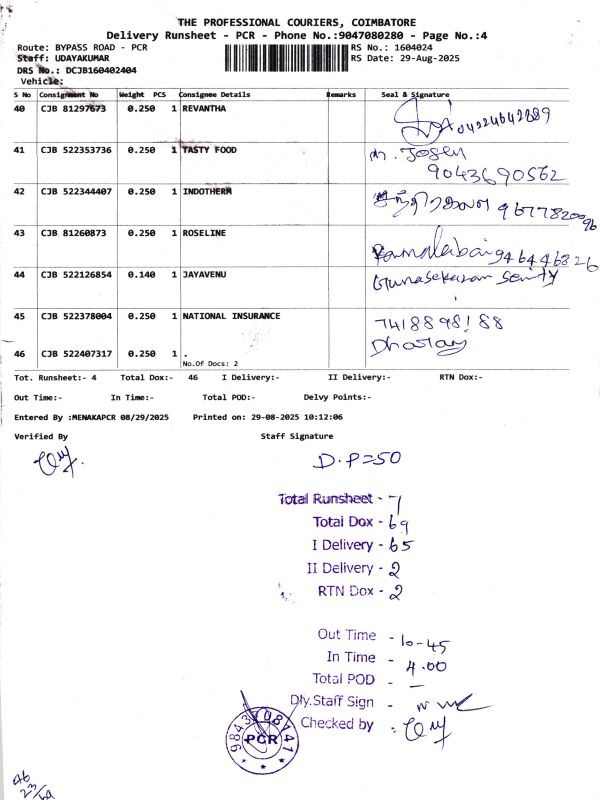 THE PROFESSIONAL COURIERS, COIMBATORE
Delivery Runsheet - PCR - Phone No.:9047080280 - Page No.:4
Route: BYPASS ROAD - PCR RS No.: 1604024
Staff: UDAYAKUMAR RS Date: 29-Aug-2025
DRS No.: DCJB160402404
Vehicle:
S No Consignment No Weight PCS Consignee Details Remarks Seal & Signature
40 CJB 81297673 0.250 1 REVANTHA 04224642889
41 CJB 522353736 0.250 1 TASTY FOOD M. Josen 9043690562
42 CJB 522344407 0.250 1 INDOTHERM 9677820096
43 CJB 81260873 0.250 1 ROSELINE 946446826
44 CJB 522126854 0.140 1 JAYAVENU Gunasekaran
45 CJB 522378004 0.250 1 NATIONAL INSURANCE 7418898188
46 CJB 522407317 0.250 1 .
No.Of Docs: 2
Tot. Runsheet:- 4 Total Dox:- 46 I Delivery:- II Delivery:- RTN Dox:-
Out Time:- In Time:- Total POD:- Delvy Points:-
Entered By :MENAKAPCR 08/29/2025 Printed on: 29-08-2025 10:12:06
Verified By Staff Signature
D.P=50
Total Runsheet - 7
Total Dox - 69
I Delivery - 65
II Delivery - 2
RTN Dox - 2
Out Time - 10-45
In Time - 4.00
Total POD - —
Dly.Staff Sign -
Checked by :
9843708141
PCR
46
23/69